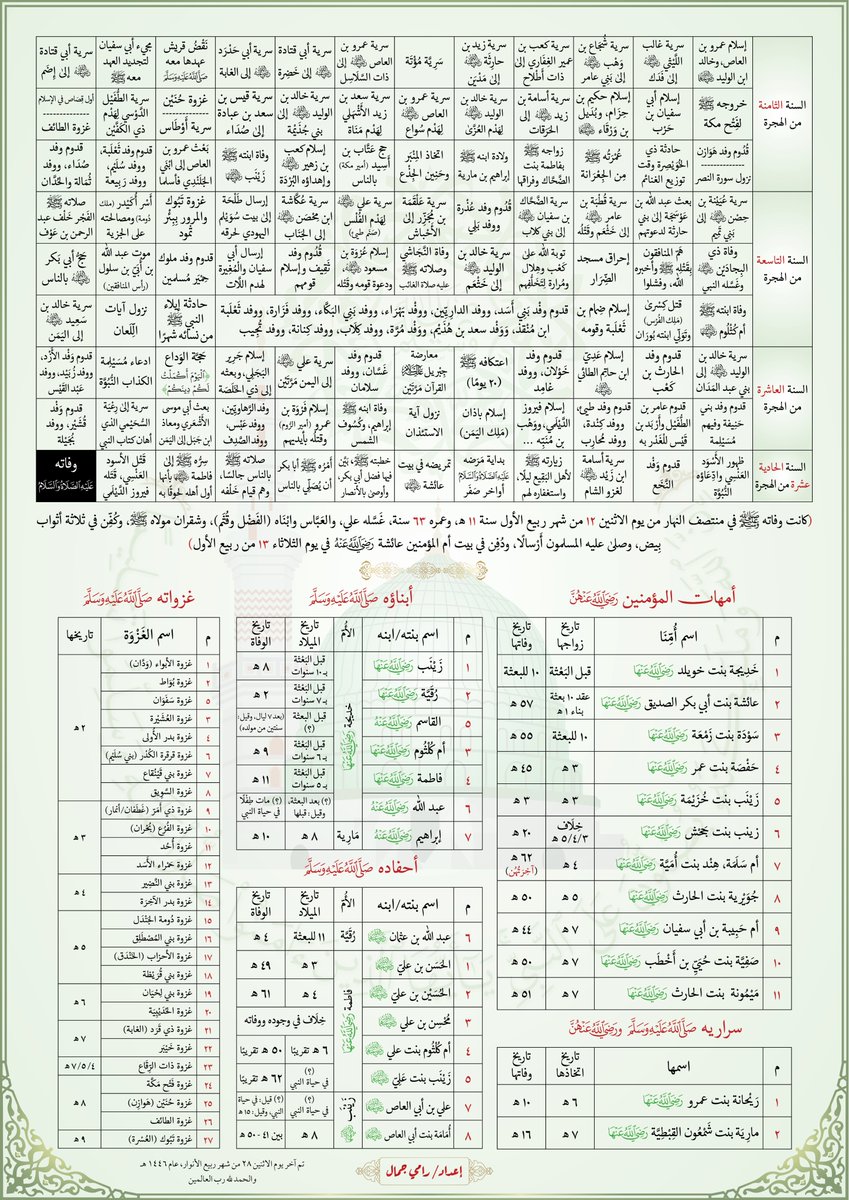 السنة الثامنة من الهجرة
إسلام عمرو بن العاص، وخالد ابن الوليد
سرية غالب اللَّيْثي إلى فَدَك
سرية شُجَاع بن وَهْب إلى بني عامر
سرية كعب بن عمير الغِفَاري إلى ذات أَطْلاح
سرية زيد بن حارِثَة إلى مَدْيَن
سَرِيَّة مُؤْتَة
سرية عمرو بن العاص إلى ذات السَّلاسِل
سرية أبي قتادة إلى خَضِرة
سرية أبي حَدْرَد إلى الغابة
نَقْضُ قريش عهدها معه ﷺ
مجيء أبي سفيان لتجديد العهد معه ﷺ
سرية أبي قتادة إلى إِضَم
خروجه ﷺ لِفَتْح مكة
إسلام أبي سفيان بن حَرْب
إسلام حكيم بن حِزام، وبُدَيل بن وَرْقَاء
سرية أسامة بن زيد إلى الحُرَقات
سرية خالد بن الوليد لِهَدْم العُزَّى
سرية عمرو بن العاص لِهَدْم سُواع
سرية سعد بن زيد الأَشْهَلي لِهَدْم مَنَاة
سرية خالد بن الوليد إلى بني جُذَيْمَة
سرية قيس بن سعد بن عبادة إلى صُدَاء
غزوة حُنَيْن
سرية أَوْطَاس
سرية الطُّفَيْل الدَّوْسي لِهَدْم ذي الكَفَّيْن
أول قِصَاص في الإسلام
غزوة الطائف
قُدُوم وفد هَوازن
نزول سورة النصر
حادثة ذي الخُوَيْصِرة وقت توزيع الغنائم
عُمْرَتُه ﷺ مِن الجِعْرَانة
زواجه ﷺ بفاطمة بنت الضَّحَّاك وفراقها
ولادة ابنه ﷺ إبراهيم من مارية
اتخاذ المِنْبَر وحَنِين الجِذْع
حج عَتَّاب بن أَسِيد (أمير مكة) بالناس
إسلام كعب بن زهير وإهداؤه البُرْدَة
وفاة ابنته ﷺ زَيْنَب
بَعْث عمرو بن العاص إلى ابْنَي الجُلَنْدِي فأسلما
قدوم وفد ثَعْلَبة، ووفد سُلَيْم، ووفد رَبِيعة
قدوم وفد صُدَاء، ووفد ثُمَالة والحُدَّان
السنة التاسعة من الهجرة
سرية عُيَيْنة بن حِصْن إلى بني تميم
سرية عبد الله بن عَوْسَجة إلى بني حارثة لدعوتهم
سرية قُطْبة بن عامر إلى خَثْعَم وقَتْلُه
سرية الضَّحَّاك بن سفيان إلى بني كلاب
قدوم وفد عُذْرة ووفد بَلِي
سرية عَلْقَمَة بن مُجَزِّز إلى الأَحْباش
سرية علي لِهَدْم الفُلْس (صنم طيئ)
سرية عُكَّاشة ابن مِحْصَن إلى الجِنَاب
إرسال طَلْحَة إلى بيت سُوَيْلِم اليهودي لحرقه
غزوة تَبُوك والمرور بِبِئْر ثمود
أَسْر أُكَيْدِر (ملك دومة) ومصالحته على الجزية
صلاته ﷺ الفَجْر خَلْف عبد الرحمن بن عَوْف
وفاة ذي البِجَادَيْن وغَسْله النبي
هَمّ المنافقون بِقَتْلِه ﷺ وأخبره الله، وفشلوا
إحراق مسجد الضِّرَار
توبة الله على كعب وهلال ومرارة لِتَخَلُّفهم
سرية خالد بن الوليد إلى خَثْعَم
وفاة النَّجَاشي وصلاته ﷺ عليه صلاة الغائب
إسلام عُرْوة بن مسعود ودعوة قومه وقَتْله
قُدُوم وفد ثَقِيف وإسلام قومهم
إرسال أبي سفيان والمُغِيرة لهدم اللَّات
قدوم وفد ملوك حِمْيَر مُسلمين
موت عبد الله بن أُبَيّ بن سلول (رأس المنافقين)
حَجُّ أبي بكر بالناس
وفاة ابنته ﷺ أم كُلثُوم
قتل كِسْرى (مَلِك الفُرْس) وتَولِّي ابنته بُورَان
إسلام ضِمَام بن ثَعْلَبة وقومه
قدوم وفد بَنِي أَسَد، ووفد الدارِيِّين، ووفد بَهْرَاء، ووفد بَنِي البَكَّاء، ووفد فَزَارة، ووفد ثَعْلَبة ابن مُنْقذ، وَوَفْد سعد بن هُذَيْم، ووَفْد مُرَّة، ووفد كِلاب، ووفد كِنانة، ووفد تُجِيب
حادثة إيلاء النبي ﷺ من نسائه شهرًا
نزول آيات اللِّعَان
سرية خالد بن سَعِيد إلى اليَمَن
السنة العاشرة من الهجرة
سرية خالد بن الوليد إلى بني عبد المَدَان
قدوم وفد الحارث بن كَعْب
إسلام عَدِيّ ابن حاتم الطائي
قدوم وفد خَوْلان، ووفد غامِد
اعتكافه ﷺ (٢٠ يومًا)
معارضة جِبْريل ﷺ القرآن مَرَّتَيْن
قدوم وفد غَسَّان، ووفد سلامان
سرية علي إلى اليمن مَرَّتَيْن
إسلام جَرِير البَجَلي، وبعثه إلى ذي الخَلَصَة
حَجَّة الوَداع
﴿الْيَوْمَ أَكْمَلْتُ لَكُمْ دِينَكُمْ﴾
ادعاء مُسَيْلِمة الكذاب النُّبُوَّة
قدوم وَفْد الأَزْد، ووفد زُبَيْد، ووفد عَبْد القَيْس
قدوم وفد بني حنيفة وفيهم مُسَيْلِمة
قدوم عامر بن الطُّفَيْل وأَرْبَد بن قَيْس للغَدْر به
قدوم وفد طيء، ووفد كِنْدة، ووفد مُحَارب
إسلام فَيروز الدَّيْلَمي، ووَهْب بن مُنَبِّه ...
إسلام باذان (مَلِك اليَمَن)
نزول آية الاستئذان
وفاة ابنه ﷺ إبراهيم، وكُسُوف الشمس
إسلام فَرْوَة بن عمرو (أمير الرُّوم) وقَتْلُه بأيديهم
وفد الرَّهاوِيِّين، ووفد عَبْس، ووفد الصَّدِف
بعث أبي موسى الأَشْعَري ومعاذ ابن جَبَل إلى اليَمَن
سرية إلى رِعْيَة السُّحَيْمي الذي أهان كتاب النبي
قدوم وفد قُشَيْر، ووفد بَجِيلة
السنة الحادية عشرة من الهجرة
ظهور الأَسْوَد العَنْسِي وادِّعاؤه النُّبُوَّة
قدوم وَفْد النَّخَع
سرية أسامة ابن زَيْد لغزو الشام
زيارته ﷺ لأهل البَقِيع ليلًا، واستغفاره لهم
بداية مَرَضه عليه الصلاة والسلام أواخر صَفَر
تمريضه في بيت عائشة
خطبته ﷺ، بَيَّن فيها فضل أبي بكر وأوصىٰ بالأنصار
أَمْرُه ﷺ أبا بكر أن يُصَلِّي بالناس
صلاته ﷺ بالناس جالسًا، وهم قيام خَلْفه
سِرُّه ﷺ إلى فاطمة بأنها أول أهله لُحُوقًا به
قَتْل الأسود العَنْسِي، قَتَله فيروز الدَّيْلَمي
وفاته عليه الصلاة والسلام
(كانت وفاته ﷺ في منتصف النهار من يوم الاثنين ١٢ من شهر ربيع الأول سنة ١١ هـ، وعمره ٦٣ سنة، غَسَّله علي، والعَبَّاس وابْنَاه (الفَضْل وقُثَم)، وشقران مولاه ﷺ، وكُفِّن في ثلاثة أثواب
بِيض، وصلىٰ عليه المسلمون أَرْسالًا، ودُفِن في بيت أم المؤمنين عائشة رضي الله عنها في يوم الثلاثاء ١٣ من ربيع الأول)
أمهات المؤمنين رضي الله عنهن
م اسم أُمِّنَا تاريخ زواجها تاريخ وفاتها
١ خَدِيجة بنت خويلد رضي الله عنها قبل البَعْثة ١٠ للبعثة
٢ عائشة بنت أبي بكر الصديق رضي الله عنها عقد ١٠ بعثة بناء ١ هـ ٥٧ هـ
٣ سَوْدَة بنت زَمْعَة رضي الله عنها ١٠ للبعثة ٥٥ هـ
٤ حَفْصَة بنت عمر رضي الله عنها ٣ هـ ٤٥ هـ
٥ زَيْنَب بنت خُزَيْمَة رضي الله عنها ٣ هـ ٣ هـ
٦ زينب بنت جَحْش رضي الله عنها خِلَاف ٥/٤/٣ هـ ٢٠ هـ
٧ أم سَلَمَة، هِنْد بنت أُمَيَّة رضي الله عنها ٤ هـ ٦٢ هـ (آخِرُهُن)
٨ جُوَيْرية بنت الحارث رضي الله عنها ٥ هـ ٥٠ هـ
٩ أم حَبِيبة بن أبي سفيان رضي الله عنها ٧ هـ ٤٤ هـ
١٠ صَفِيَّة بنت حُيَيّ بن أَخْطَب رضي الله عنها ٧ هـ ٥٠ هـ
١١ مَيْمُونة بنت الحارث رضي الله عنها ٧ هـ ٥١ هـ
سراريه صلى الله عليه وسلم ورضي الله عنهن
م اسمها تاريخ اتخاذها تاريخ وفاتها
١ رَيْحَانة بنت عمرو رضي الله عنها ٦ هـ ١٠ هـ
٢ مارِيَة بنت شَمْعُون القِبْطِيَّة رضي الله عنها ٧ هـ ١٦ هـ
أبناؤه صلى الله عليه وسلم
م اسم بنته/ابنه الأُمّ تاريخ الميلاد تاريخ الوفاة
١ زَيْنَب رضي الله عنها خديجة رضي الله عنها قبل البَعْثة بـ ١٠ سنوات ٨ هـ
٢ رُقَيَّة رضي الله عنها قبل البعثة بـ ٧ سنوات ٢ هـ
٥ القاسم رضي الله عنه قبل البعثة (؟) (بعد ٧ ليال، وقيل: سنتين من مولده)
٣ أم كُلْثُوم رضي الله عنها قبل البعثة بـ ٦ سنوات ٩ هـ
٤ فاطمة رضي الله عنها قبل البعثة بـ ٥ سنوات ١١ هـ
٦ عبد الله رضي الله عنه (؟) بعد البعثة، وقيل: قبلها (؟) مات طِفْلًا في حياة النبي
٧ إبراهيم رضي الله عنه مَارِية ٨ هـ ١٠ هـ
أحفاده صلى الله عليه وسلم
م اسم بنته/ابنه الأُمّ تاريخ الميلاد تاريخ الوفاة
٦ عبد الله بن عثمان رُقَيَّة ١١ للبعثة ٤ هـ
١ الحَسَن بن عليّ فاطمة رضي الله عنها ٣ هـ ٤٩ هـ
٢ الحُسَيْن بن عليّ ٤ هـ ٦١ هـ
٣ مُحْسِن بن علي خِلَاف في وجوده ووفاته
٤ أم كُلْثُوم بنت علي ٦ هـ تقريبًا ٥٠ هـ تقريبًا
٥ زَيْنَب بنت عَلِيّ (؟) في حياة النبي ٦٢ هـ تقريبًا
٧ علي بن أبي العاص زَيْنَب (؟) في حياة النبي (؟) قيل: في حياة النبي، وقيل: ١٥ هـ
٨ أُمَامَة بنت أبي العاص ٨ هـ بين ٤١-٥٠ هـ
غزواته صلى الله عليه وسلم
م اسم الغَزْوَة تاريخها
١ غزوة الأَبْواء (وَدَّان) ٢ هـ
٢ غزوة بُوَاط
٥ غزوة سَفَوَان
٣ غزوة العُشَيْرة
٤ غزوة بدر الأُولى
٦ غزوة قرقرة الكُدْر (بني سُلَيْم)
٧ غزوة بني قَيْنُقاع
٨ غزوة السَّوِيق
٩ غزوة ذي أَمَرّ (غَطَفان/أنمار) ٣ هـ
١٠ غزوة الفُرُع (بُحْران)
١١ غزوة أُحُد
١٢ غزوة حمراء الأَسَد
١٣ غزوة بني النَّضِير ٤ هـ
١٤ غزوة بدر الآخِرَة
١٥ غزوة دُومة الجَنْدَل ٥ هـ
١٦ غزوة بني المُصْطَلِق
١٧ غزوة الأحزاب (الخَنْدَق)
١٨ غزوة بني قُرَيْظَة
١٩ غزوة بني لِحْيَان ٦ هـ
٢٠ غزوة الحُدَيْبِيَة
٢١ غزوة ذي قَرَد (الغابة) ٧ هـ
٢٢ غزوة خَيْبَر
٢٣ غزوة ذات الرِّقَاع ٧/٥/٤ هـ
٢٤ غزوة فَتْح مَكَّة ٨ هـ
٢٥ غزوة حُنَيْن (هَوازِن)
٢٦ غزوة الطائف
٢٧ غزوة تَبُوك (العُسْرة) ٩ هـ
إعداد/ رامي جمال
تم آخر يوم الاثنين ٢٨ من شهر ربيع الأنوار، عام ١٤٤٦ هـ
والحمد لله رب العالمين